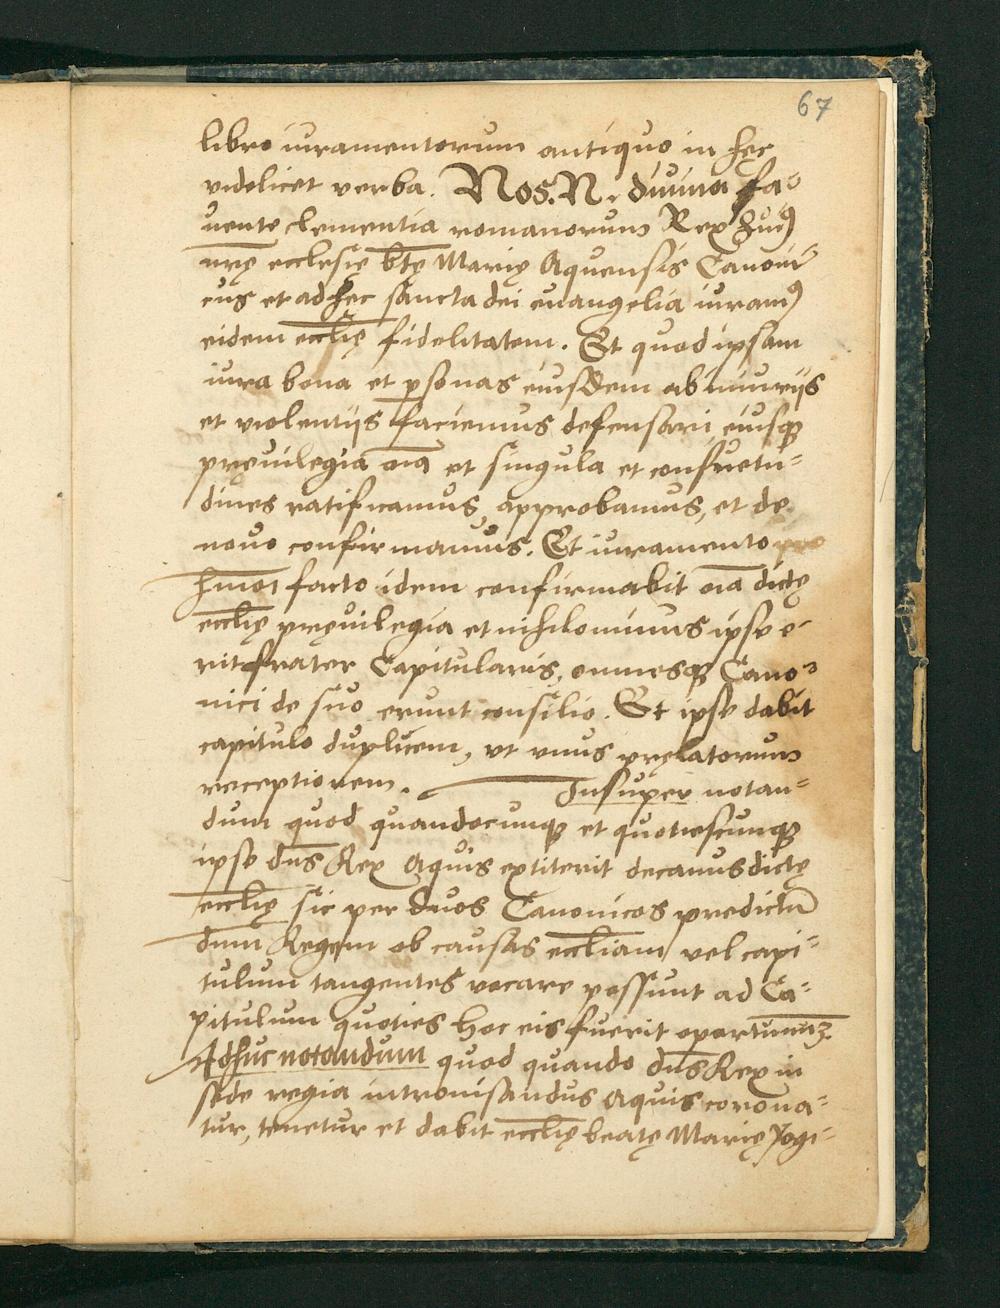 67
libro iuramentorum antiquo in hęc
videlicet verba. Nos. N. diuina fa-
uente clementia romanorum Rex huiꝰ
nrę ecclesię btę Marię Aquensis Canoni
cus et ad hęc sancta dei euangelia iuramꝰ
eidem ecclię fidelitatem. Et quod ipsam
iura bona et psonas eiusdem ab iniurijs
et violentijs faciemus defensari, eiusqꝫ
preuilegia oia et singula et consuetu=
dines ratificamus, approbamus, et de
nouo confirmamus. Et iuramento
hmoi facto idem confirmabit oia dictę
ecclię preuilegia et nihilominus ipse e-
rit frater Capitularis, omnesqꝫ Cano-
nici de suo erunt consilio. Et ipse dabit
capitulo duplicem, vt vnus pręlatorum
receptionem. Insuper notan=
dum quod quandocunqꝫ et quotiescunqꝫ
ipse dns Rex Aquis extiterit decanus dictę
ecclię sic per duos Canonicos predictū
dnm Regem ob causas eccliam vel capi=
tulum tangentes vocare possunt ad Ca=
pitulum quoties hoc eis fuerit oportunuꝫ
Adhuc notandum quod quando dns Rex in
sede regia intronisandus Aquis corona=
tur, tenetur et dabit ecclię beatę Marię